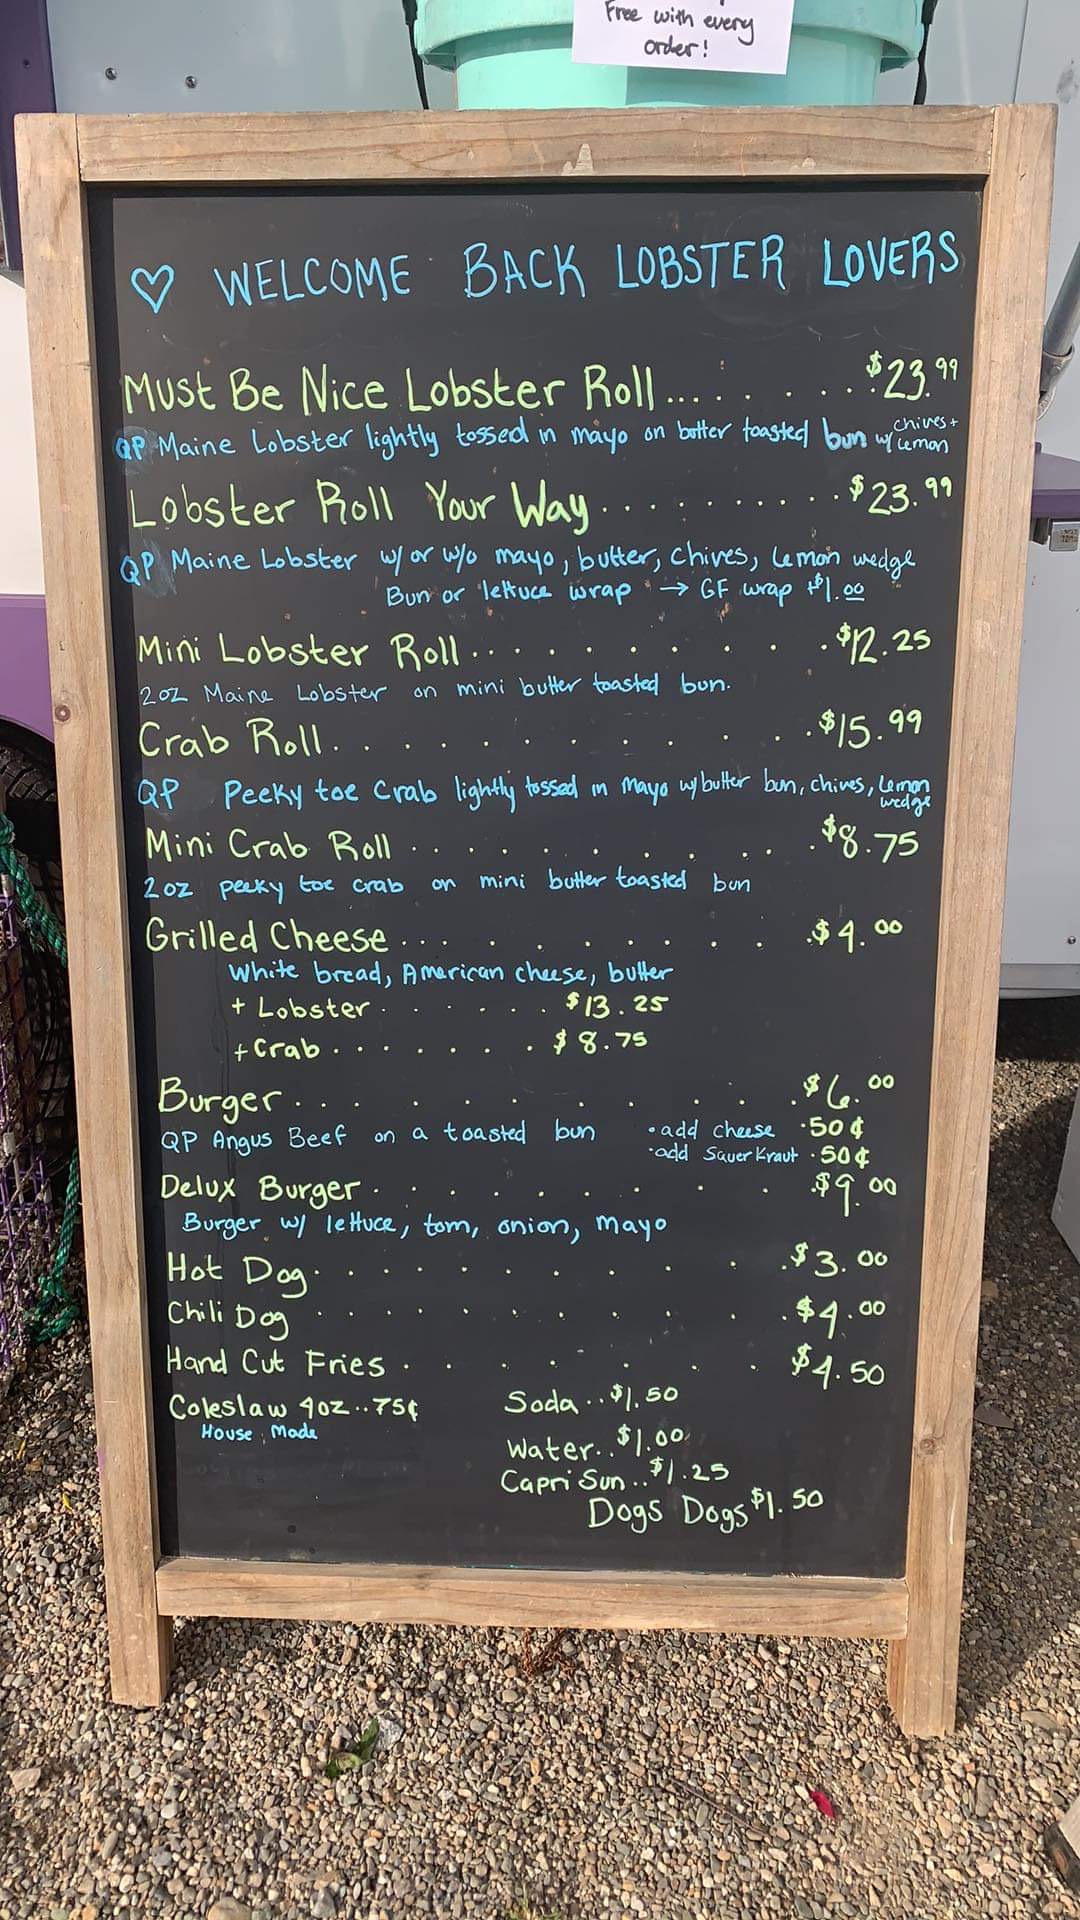 Free with every
order!
♡ WELCOME BACK LOBSTER LOVERS
Must Be Nice Lobster Roll..... . . . $23.99
QP Maine Lobster lightly tossed in mayo on butter toasted bun w/ chives + Lemon
Lobster Roll Your Way . . . . . . . . . $23.99
QP Maine Lobster w/ or w/o mayo, butter, chives, lemon wedge
Bun or lettuce wrap → GF wrap +$1.00
Mini Lobster Roll . . . . . . . . . $12.25
2oz Maine Lobster on mini butter toasted bun.
Crab Roll . . . . . . . . . . . $15.99
QP Peeky toe Crab lightly tossed in mayo w/ butter bun, chives, Lemon wedge
Mini Crab Roll . . . . . . . . . . $8.75
2oz peeky toe crab on mini butter toasted bun
Grilled Cheese . . . . . . . . . . $4.00
White bread, American cheese, butter
+ Lobster . . . . . . $13.25
+ Crab . . . . . . . $8.75
Burger . . . . . . . . . . . $6.00
QP Angus Beef on a toasted bun •add cheese .50¢
•add SauerKraut .50¢
Delux Burger . . . . . . . . . . $9.00
Burger w/ lettuce, tom, onion, mayo
Hot Dog . . . . . . . . . . . $3.00
Chili Dog . . . . . . . . . . . $4.00
Hand Cut Fries . . . . . . . . $4.50
Coleslaw 4oz..75¢ Soda..$1.50
House Made
Water..$1.00
Capri Sun..$1.25
Dogs Dogs $1.50